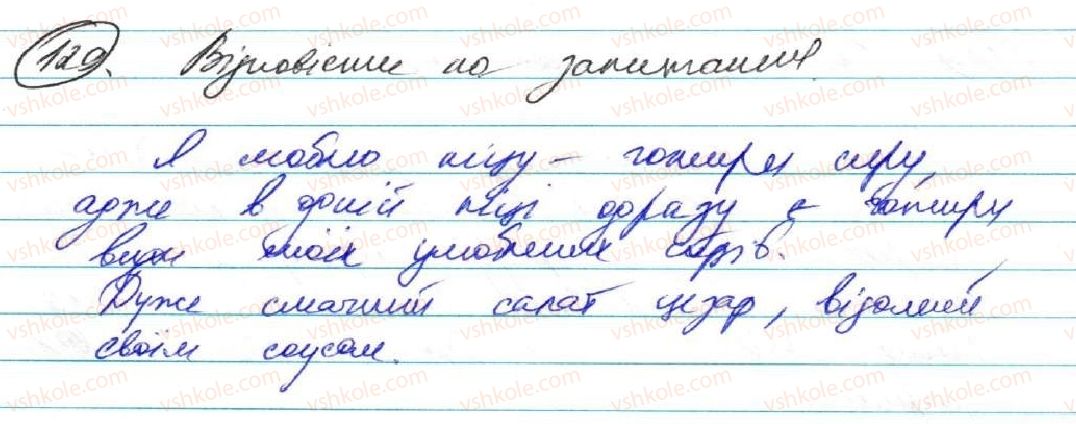 129. Відповісти на запитання.
Я люблю піцу – чотири сиру,
адже в одній піці одразу є чотири
види моїх улюблених сирів.
Дуже смачний салат цезар, відомий
своїм соусом.